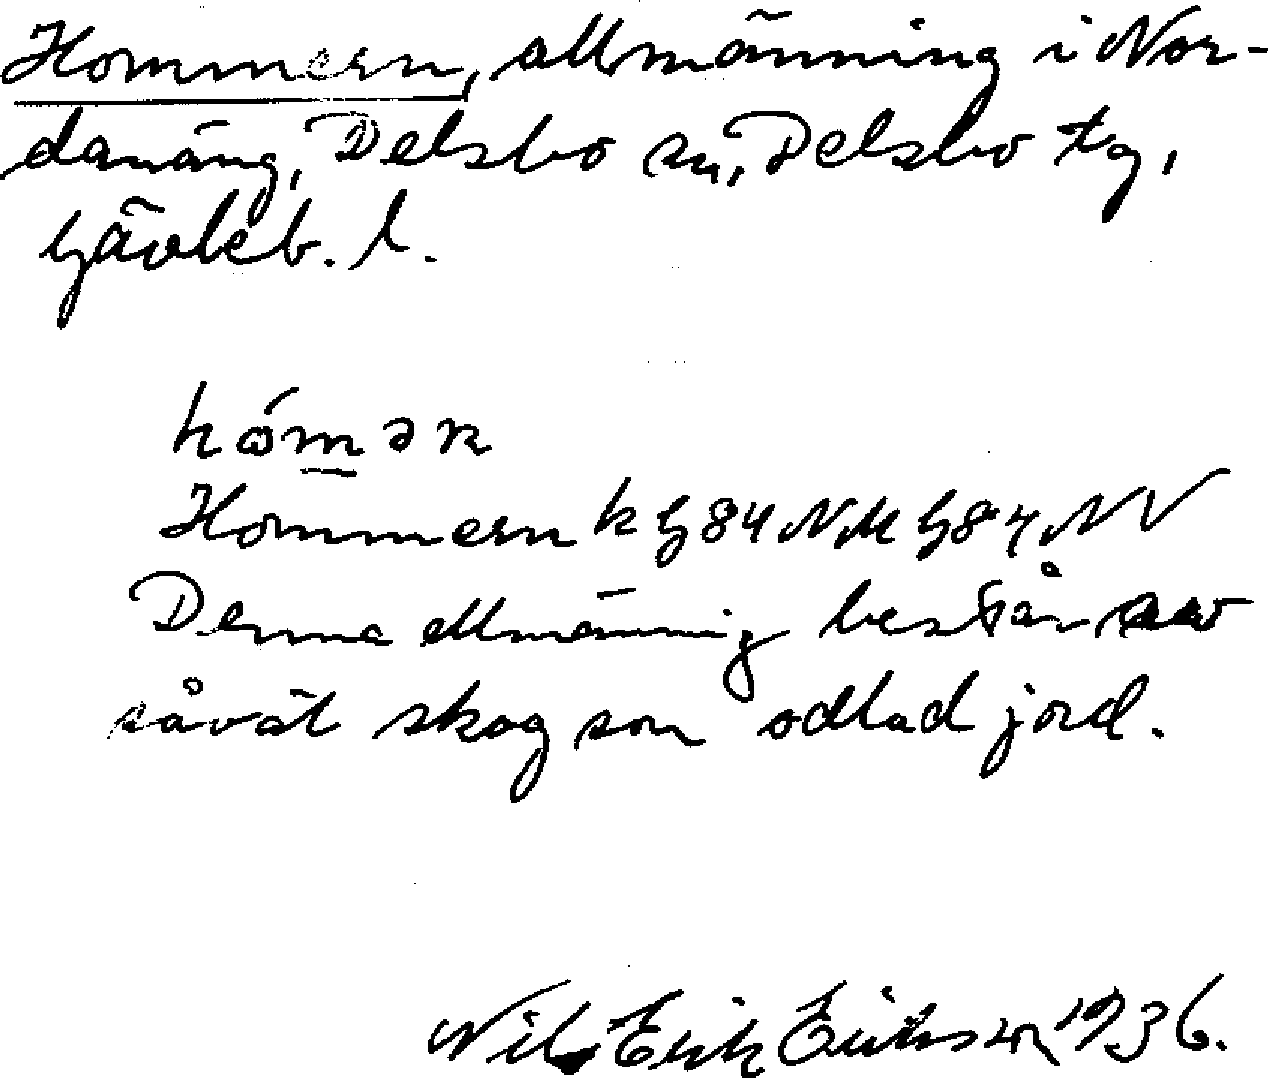 Hommern, allmänning i Nor-
danäng, Delsbo sn, Delsbo tg,
Gävleb. l.
hómən
Hommern k G84NM G84NV
Denna allmänning består av
såväl skog som odlad jord.
Nils Erik Eriksson 1936.